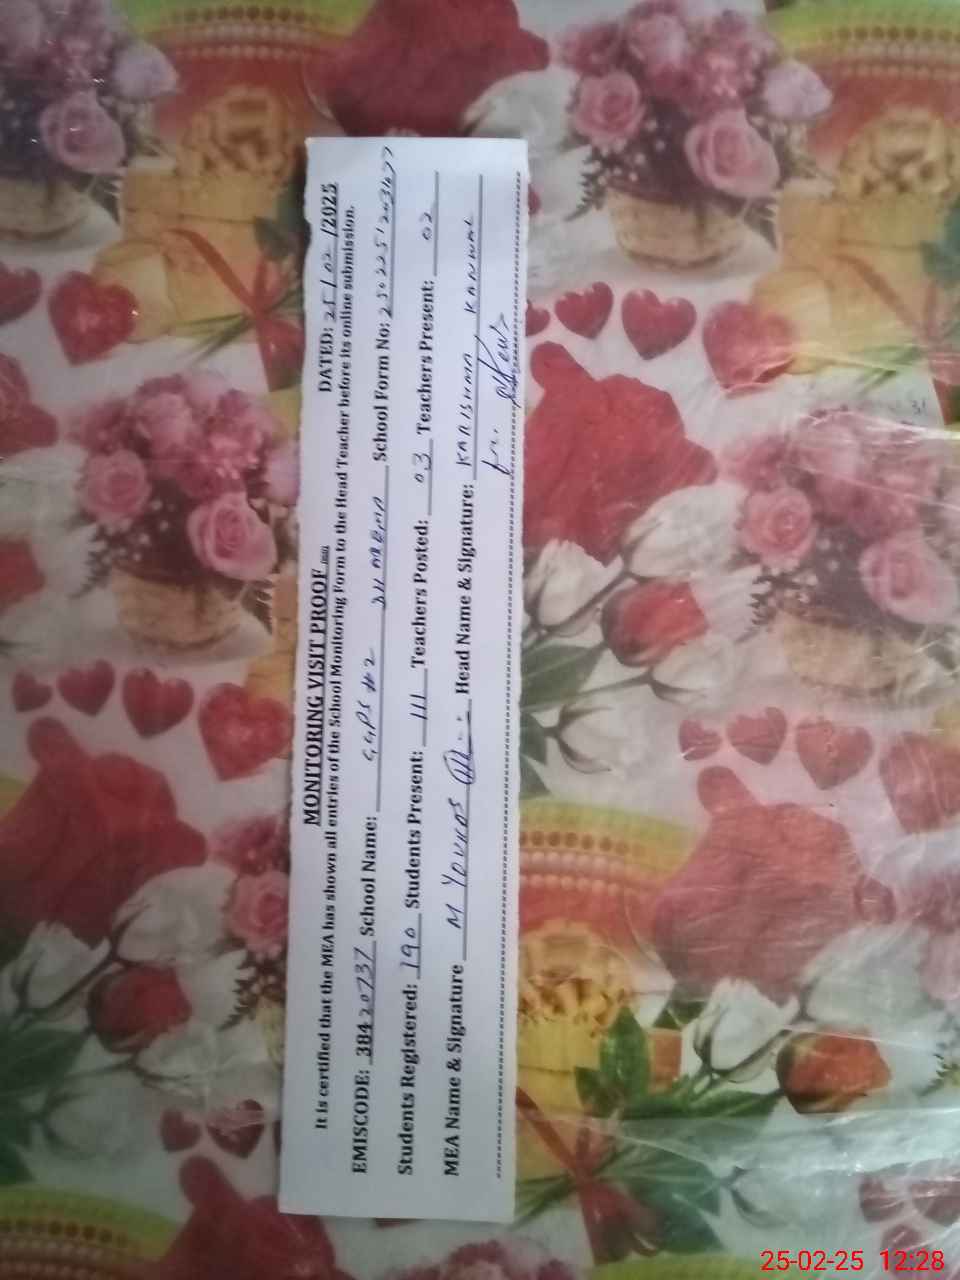 MONITORING VISIT PROOF DATED: 25/02/2025
It is certified that the MEA has shown all entries of the School Monitoring Form to the Head Teacher before its online submission.
EMISCODE: 38420737 School Name: GGPS #2 School Form No:
Students Registered: 190 Students Present: 111 Teachers Posted: 03 Teachers Present: 02
MEA Name & Signature M YOUNAS Head Name & Signature: KARISHMA KANWAL
25-02-25 12:28